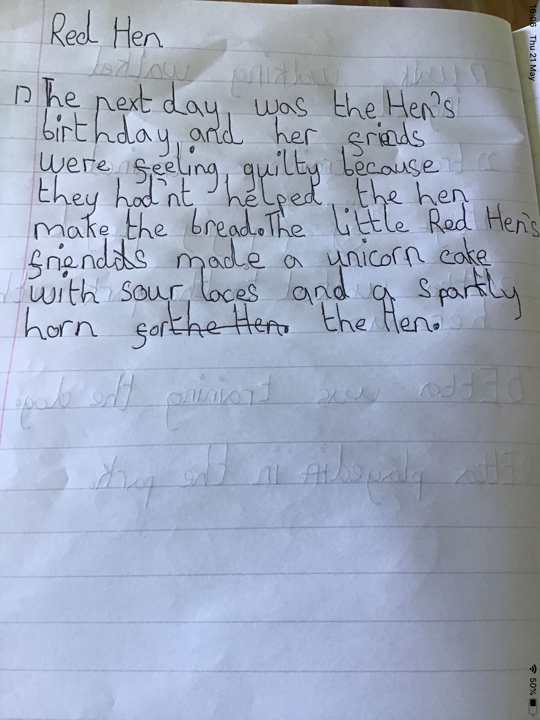 Red Hen
The next day was the Hen's
birthday, and her frinds
were feeling guilty because
they had'nt helped the hen
make the bread. The little Red Hen's
friends made a unicorn cake
with sour laces and a sparkly
horn for the Hen. the Hen.
Etta was training the dog.
Etta played in the park.
Thu 21 May
50%